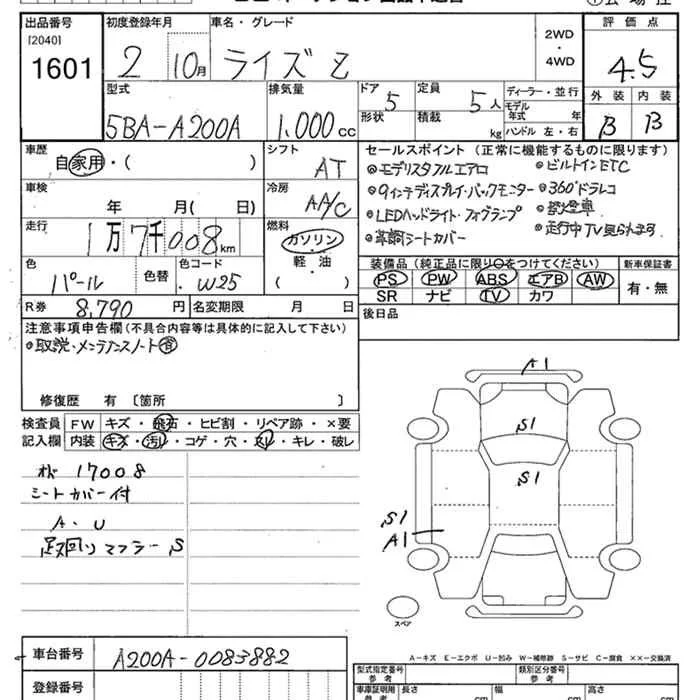 出品番号 初度登録年月 車名・グレード 2WD・4WD 評価点
[2040]
1601 2 10月 ライズ Z 4.5
型式 排気量 ドア 5 定員 5人 ディーラー・並行 外装 内装
5BA-A200A 1.000cc 形状 積載 kg モデル年式 年 B B
ハンドル 左・右
車歴 シフト セールスポイント(正常に機能するものに限ります)
自家用・( ) AT ◎モデリスタフルエアロ ◎ビルトインETC
車検 冷房 ◎9インチディスプレイ・バックモニター ◎360°ドラレコ
年 月(日) AA/C ◎LEDヘッドライト・フォグランプ ◎禁煙車
走行 燃料 ◎革調シートカバー ◎走行中TV見られます。
1万7千008km ガソリン・軽油
色 色替 色コード ( ) 装備品(純正品に限り○をつけてください) 新車保証書
パール W25 PS PW ABS エアB AW 有・無
R券 8,790円 名変期限 月 日 SR ナビ TV カワ
注意事項申告欄(不具合内容等は具体的に記入して下さい) 後日品
◎取説・メンテナンスノート有
修復歴 有 〔箇所 〕
検査員 FW キズ・飛石・ヒビ割・リペア跡・×要
記入欄 内装 キズ・汚レ・コゲ・穴・スレ・キレ・破レ
17008
シートカバー付
A・U
足廻りマフラーS
A1
S1
S1
S1
A1
スペア
A－キズ E－エクボ U－凹み W－補修跡 S－サビ C－腐食 ××－交換済
車台番号 A200A-0083882
登録番号
型式指定番号 参考 類別区分番号 参考
車庫証明用 参考 長さ cm 幅 cm 高さ cm